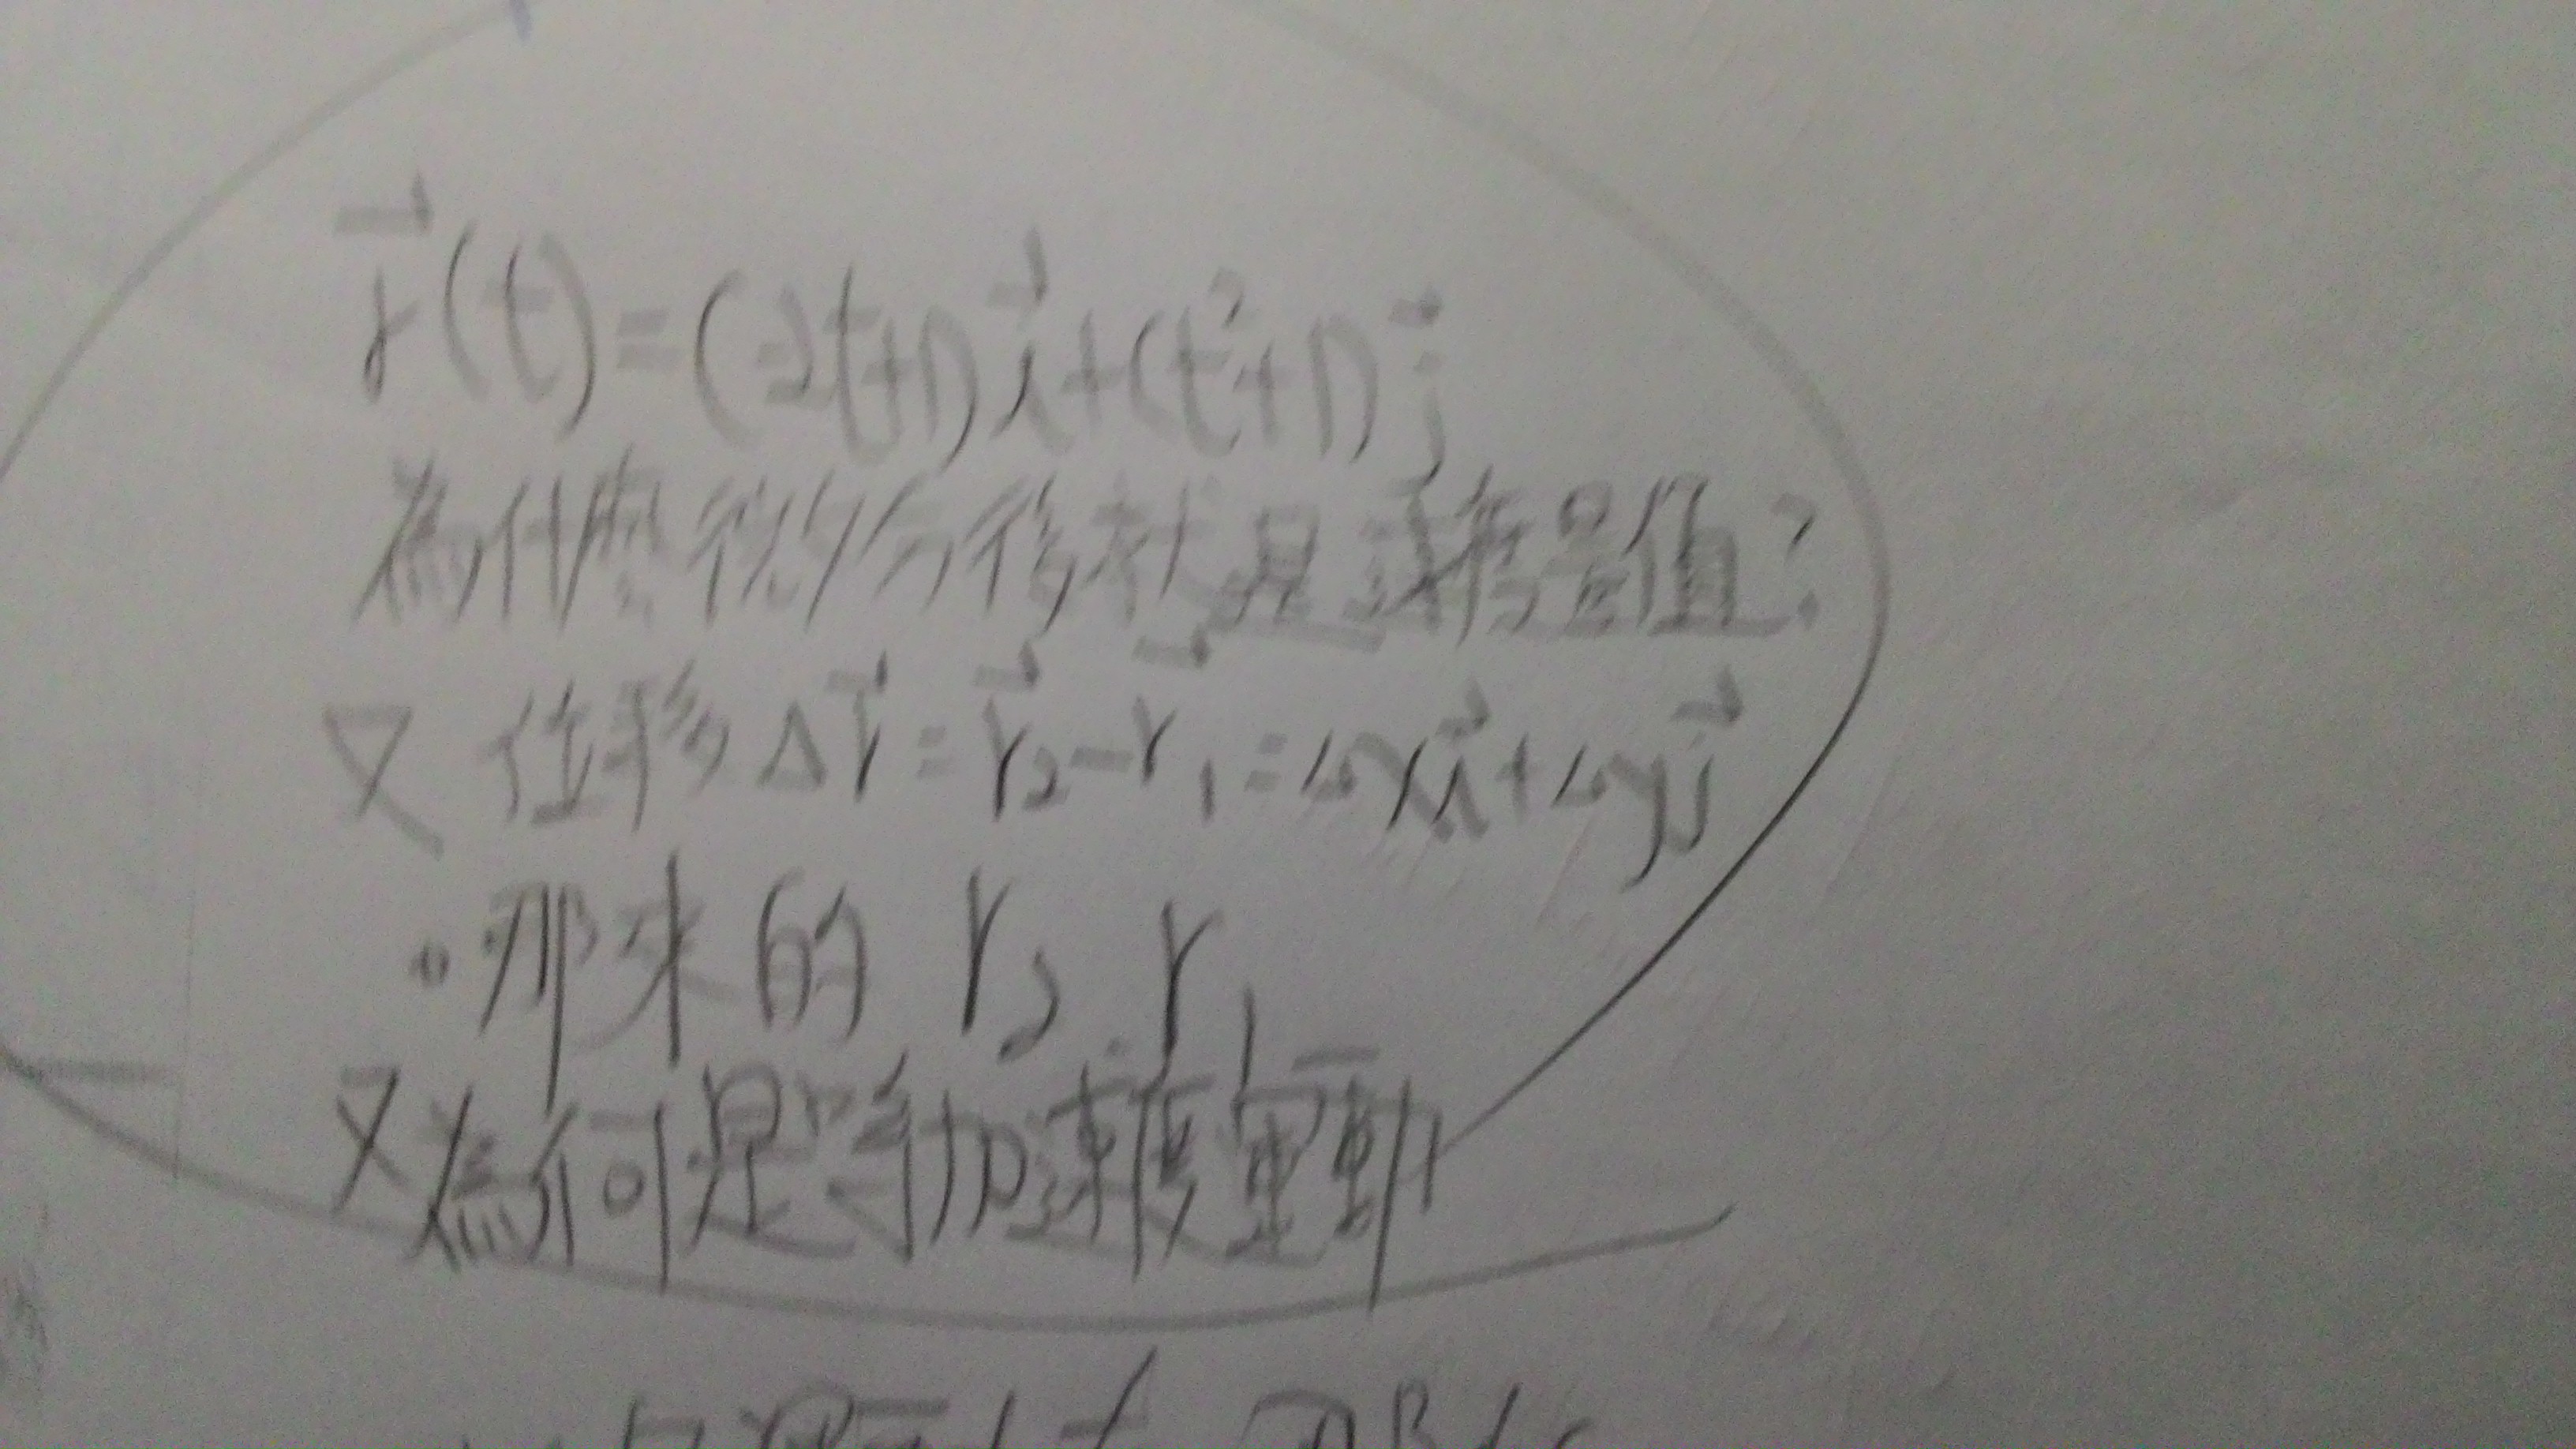 r⃗(t)=(2t+1)i⃗+(t²+1)j⃗
為什麼微分後就是速度量值?
又 位移Δr⃗=r⃗₂-r⃗₁=Δxi⃗+Δyj⃗
·那來的 r₂ r₁
又為何是等加速度運動